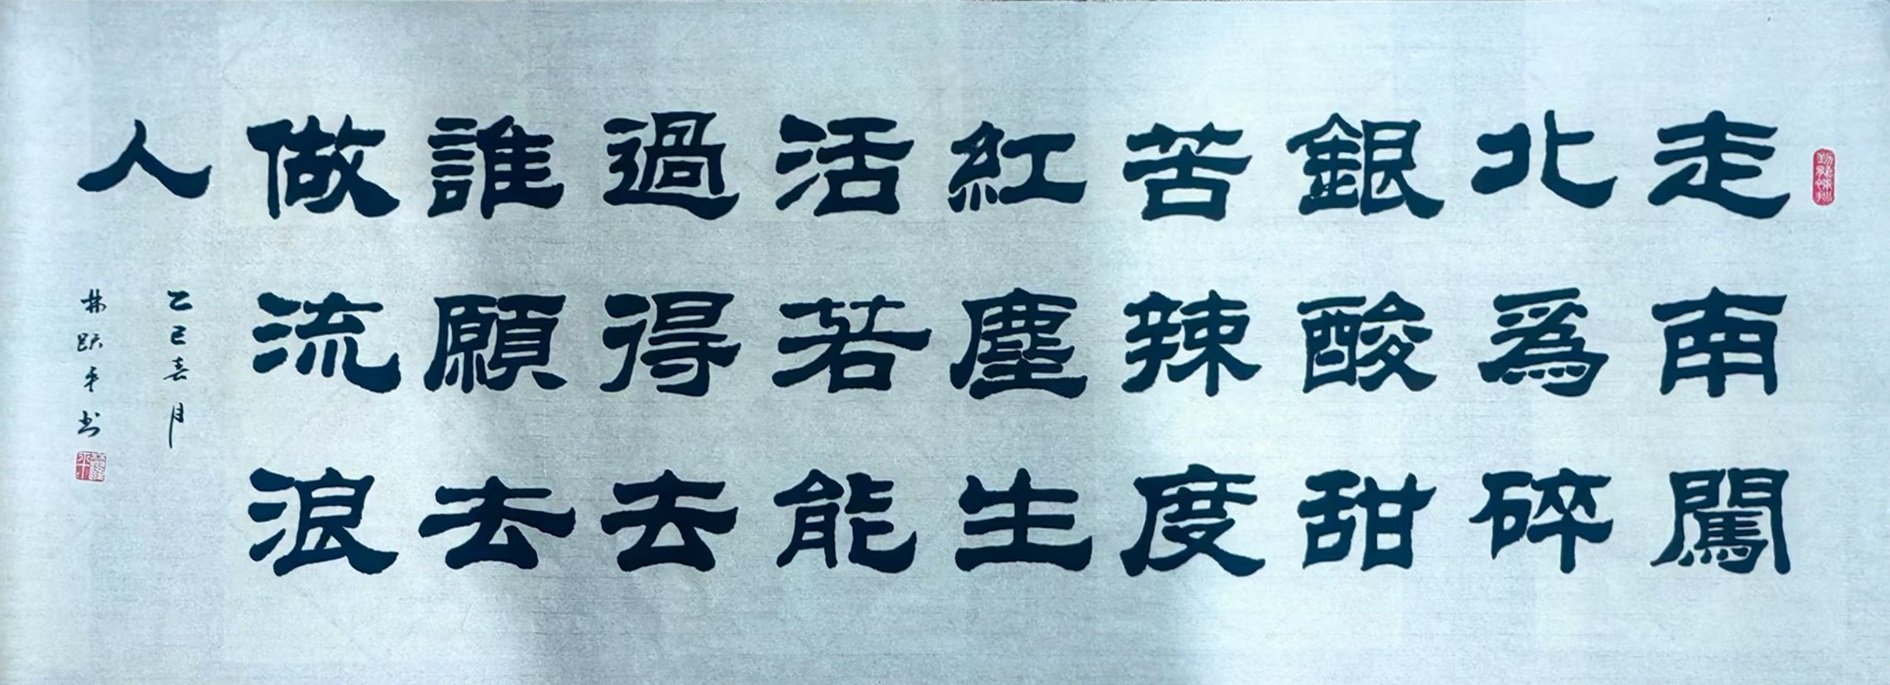 走南闖
北為碎
銀酸甜
苦辣度
紅塵生
活若能
過得去
誰願去
做流浪
人
乙巳喜月
林跃平书